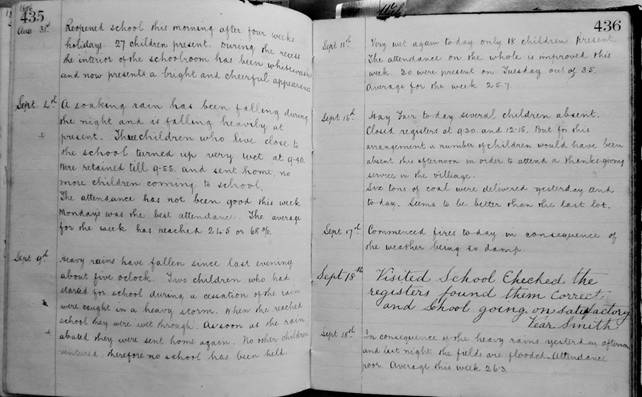 435
Aug 31st Reopened school this morning after four weeks
holidays. 27 children present. During the recess
the interior of the schoolroom has been whitewashed
and now presents a bright and cheerful appearance
Sept 4th A soaking rain has been falling during
the night and is falling heavily at
present. Three children who live close to
the school turned up very wet at 9-40.
Were retained till 9-55. and sent home no
more children coming to school.
The attendance has not been good this week
Mondays was the best attendance. The average
for the week has reached 24.5 or 68%.
Sept 9th Heavy rains have fallen since last evening
about five oclock. Two children who had
started for school during a cessation of the rain
were caught in a heavy storm. When they reached
school they were wet through. As soon as the rain
abated they were sent home again. No other children
ventured, therefore no school has been held.
436
Sept 11th Very wet again today only 18 children Present.
The attendance on the whole is improved this
week. 30 were present on Tuesday out of 35.
Average for the week 25.7.
Sept 16th Hay Fair today several children absent.
Closed registers at 9.30. and 12-15. But for this
arrangement a number of children would have been
absent this afternoon in order to attend a thanksgiving
service in the village.
Six tons of coal were delivered yesterday and
today. Seems to be better than the last lot.
Sept 17th Commenced fires today in consequence of
the weather being so damp.
Sept 18th Visited School Checked the
registers found them correct
and School going on satisfactory
Smith
Sept 18th In consequence of the heavy rains yesterday afternoon
and last night the fields are flooded. Attendance
poor. Average this week 26.3.